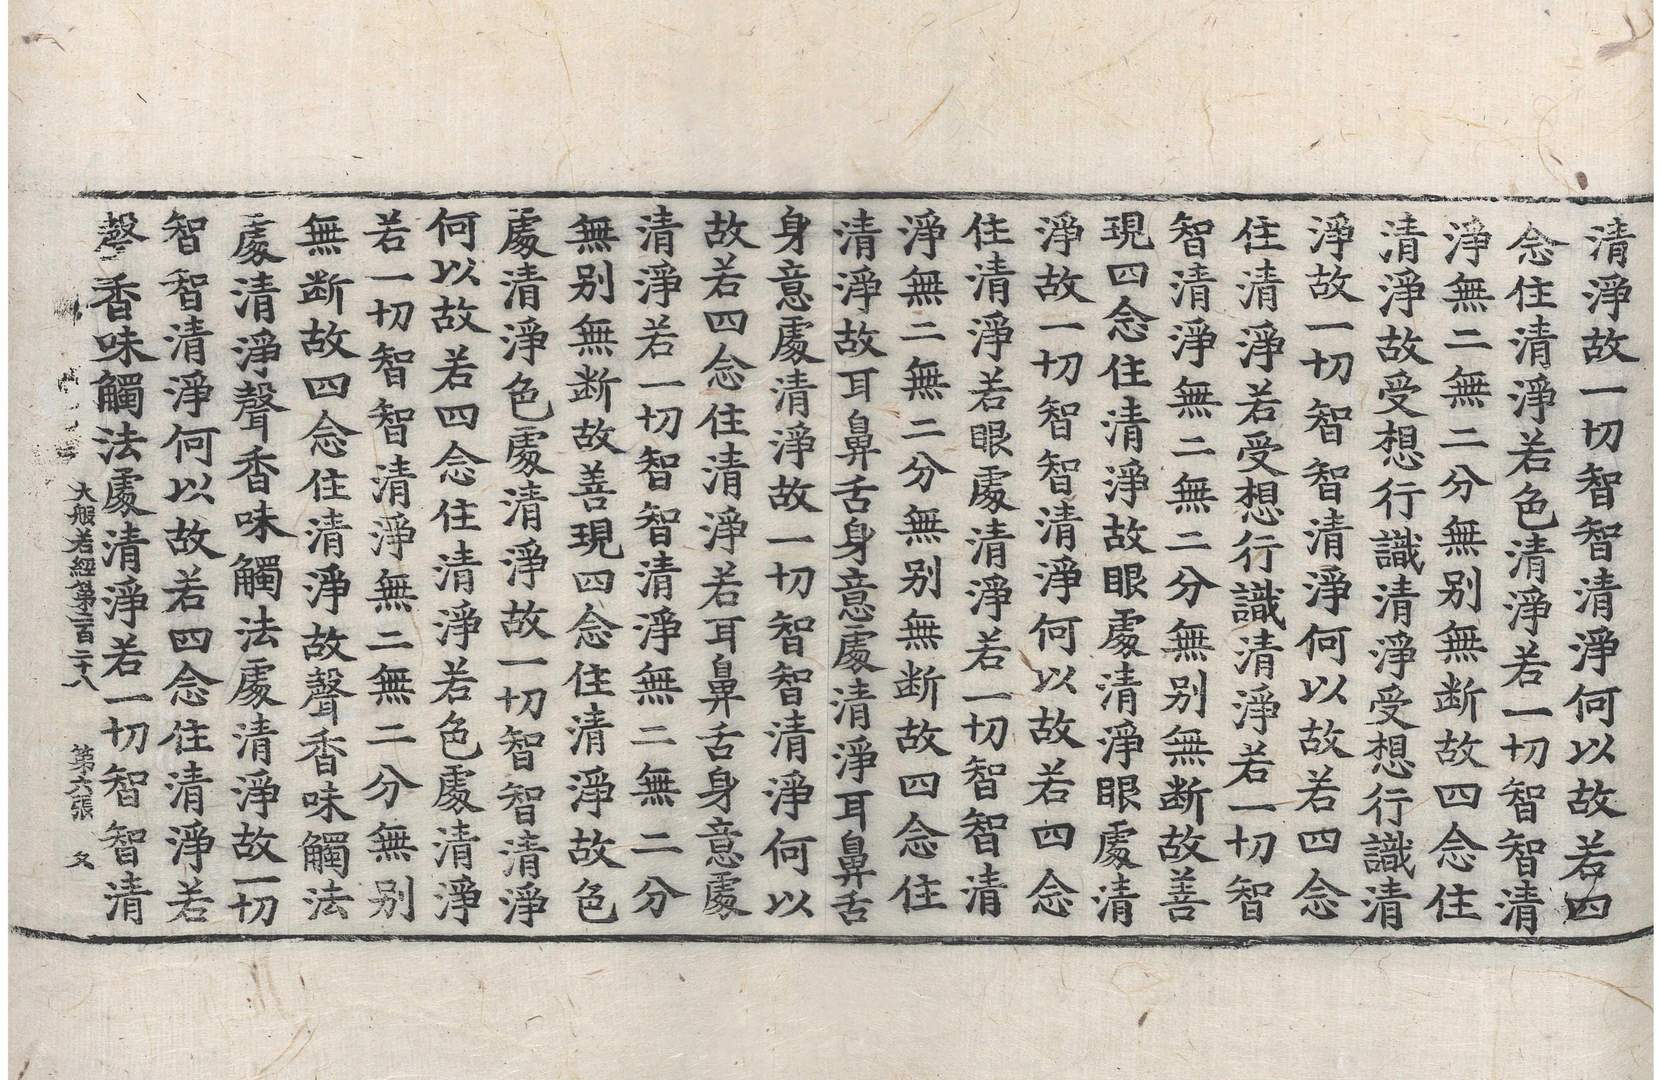 清淨故一切智智清淨何以故若四
念住清淨若色清淨若一切智智清
淨無二無二分無别無断故四念住
清淨故受想行識清淨受想行識清
淨故一切智智清淨何以故若四念
住清淨若受想行識清淨若一切智
智清淨無二無二分無别無断故善
現四念住清淨故眼處清淨眼處清
淨故一切智智清淨何以故若四念
住清淨若眼處清淨若一切智智清
淨無二無二分無别無断故四念住
清淨故耳鼻舌身意處清淨耳鼻舌
身意處清淨故一切智智清淨何以
故若四念住清淨若耳鼻舌身意處
清淨若一切智智清淨無二無二分
無别無断故善現四念住清淨故色
處清淨色處清淨故一切智智清淨
何以故若四念住清淨若色處清淨
若一切智智清淨無二無二分無别
無断故四念住清淨故聲香味觸法
處清淨聲香味觸法處清淨故一切
智智清淨何以故若四念住清淨若
聲香味觸法處清淨若一切智智清
大般若經第二百二十八 第六張 冬